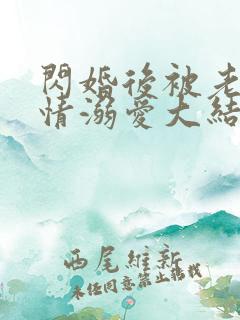 閃婚後被老
情溺愛大結
西尾維新
未經同意禁止轉載